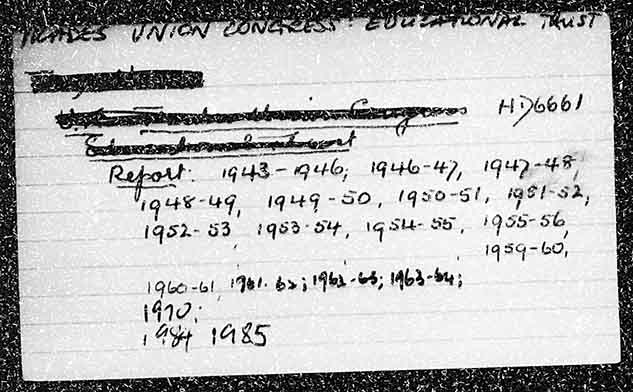 TRADES UNION CONGRESS: EDUCATIONAL TRUST
HD6661
Report: 1943-1946, 1946-47, 1947-48,
1948-49, 1949-50, 1950-51, 1951-52,
1952-53 1953-54, 1954-55, 1955-56,
1959-60,
1960-61, 1961-62; 1962-63; 1963-64;
1970;
1984 1985